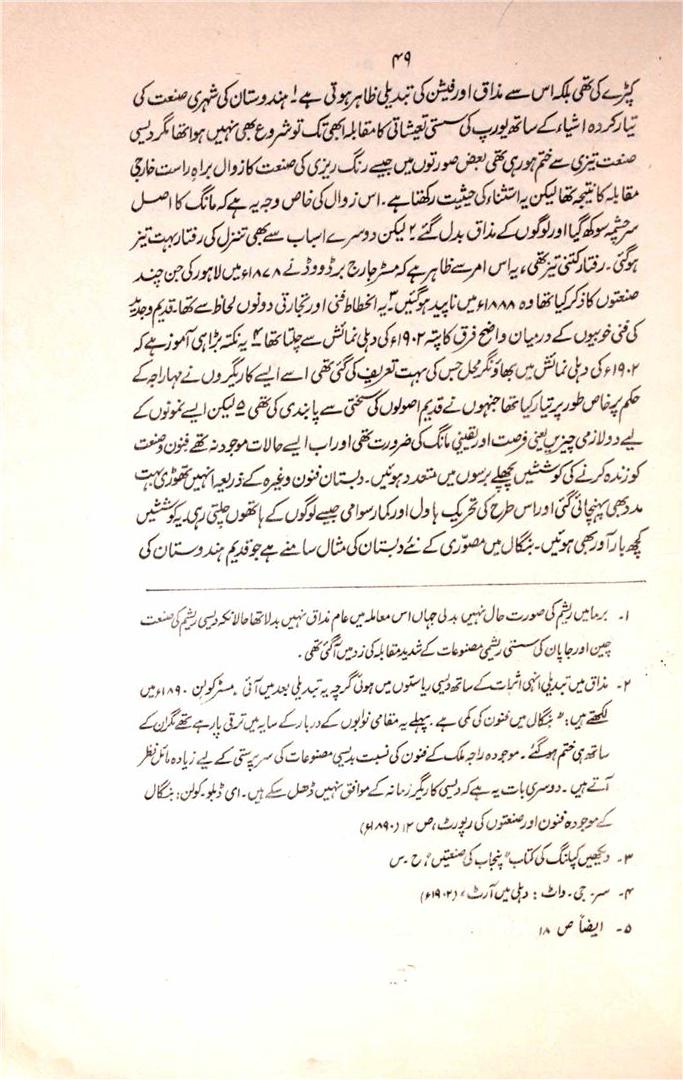 ۴۹
کپڑے کی تھی بلکہ اس سے مذاق اور فیشن کی تبدیلی ظاہر ہوتی ہے۱ ہندوستان کی شہری صنعت کی
تیار کردہ اشیاء کے ساتھ یورپ کی سستی تعیشاتی کا مقابلہ ابھی تک تو شروع بھی نہیں ہوا تھا مگر دیسی
صنعت تیزی سے ختم ہو رہی تھی بعض صورتوں میں جیسے رنگ ریزی کی صنعت کا زوال براہِ راست خارجی
مقابلہ کا نتیجہ تھا لیکن یہ استثناء کی حیثیت رکھتا ہے۔ اس زوال کی خاص وجہ یہ ہے کہ مانگ کا اصل
سرچشمہ سوکھ گیا اور لوگوں کے مذاق بدل گئے ۲ لیکن دوسرے اسباب سے بھی تنزل کی رفتار بہت تیز
ہو گئی۔ رفتار کتنی تیز تھی، یہ اس امر سے ظاہر ہے کہ مسٹر جارج برڈووڈ نے ۱۸۷۸ء میں لاہور کی جن چند
صنعتوں کا ذکر کیا تھا وہ ۱۸۸۸ء میں ناپید ہو گئیں۳ یہ انحطاط فنی اور تجارتی دونوں لحاظ سے تھا۔ قدیم و جدید
کی فنی خوبیوں کے درمیان واضح فرق کا پتہ ۱۹۰۲ء کی دہلی نمائش سے چلتا تھا ۴ یہ نکتہ بڑا ہی آموز ہے کہ
۱۹۰۲ء کی دہلی نمائش میں بھاؤنگر محل جس کی بہت تعریف کی گئی تھی اسے ایسے کاریگروں نے مہاراجہ کے
حکم پر خاص طور پر تیار کیا تھا جنہوں نے قدیم اصولوں کی سختی سے پابندی کی تھی ۵ لیکن ایسے نمونوں کے
لیے دو لازمی چیزیں یعنی فرصت اور یقینی مانگ کی ضرورت تھی اور اب ایسے حالات موجود نہ تھے فنون و صنعت
کو زندہ کرنے کی کوششیں پچھلے برسوں میں متعدد ہوئیں۔ دبستان فنون وغیرہ کے ذریعہ انہیں تھوڑی بہت
مدد بھی پہنچائی گئی اور اس طرح کی تحریک ہاول اور کمار سوامی جیسے لوگوں کے ہاتھوں چلتی رہی۔ یہ کوششیں
کچھ بارآور بھی ہوئیں۔ بنگال میں مصوّری کے نئے دبستان کی مثال سامنے ہے جو قدیم ہندوستان کی
۱۔ برما میں ریشم کی صورت حال نہیں بدلی جہاں اس معاملہ میں عام مذاق نہیں بدلا تھا حالانکہ دیسی ریشم کی صنعت
چین اور جاپان کی سستی ریشمی مصنوعات کے شدید مقابلہ کی زد میں آ گئی تھی۔
۲۔ مذاق میں تبدیلی انہی اثرات کے ساتھ دیسی ریاستوں میں ہوئی گرچہ یہ تبدیلی بعد میں آئی۔ مسٹر کولن ۱۸۹۰ء میں
لکھتے ہیں: "بنگال میں فنون کی کمی ہے۔ پہلے یہ مقامی نوابوں کے دربار کے سایہ میں ترقی پا رہے تھے مگر ان کے
ساتھ ہی ختم ہو گئے۔ موجودہ راجہ ملک کے فنون کی نسبت بدیسی مصنوعات کی سرپرستی کے لیے زیادہ مائل نظر
آتے ہیں۔ دوسری بات یہ ہے کہ دیسی کاریگر زمانہ کے موافق نہیں ڈھل سکے ہیں۔ ای ڈبلو۔ کولن: بنگال
کے موجودہ فنون اور صنعتوں کی رپورٹ، ص ۱۲ (۱۸۹۰ء)
۳۔ دیکھیں کپلنگ کی کتاب "پنجاب کی صنعتیں" ح۔ س
۴۔ سر۔ جی۔ واٹ: دہلی میں آرٹ، (۱۹۰۲ء)
۵۔ ایضاً ص ۱۸